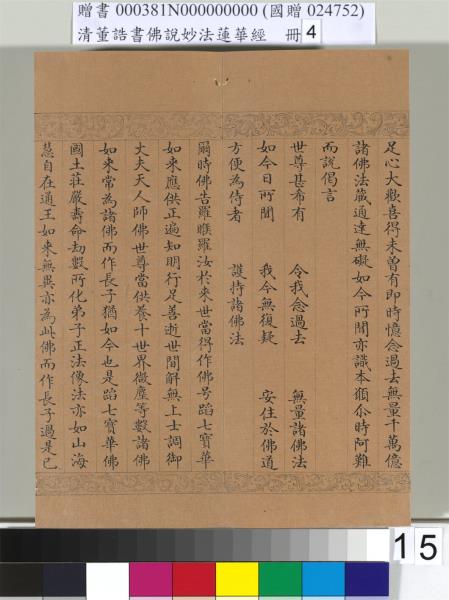 贈書 000381N000000000 (國贈 024752)
清董誥書佛說妙法蓮華經 冊 4
足心大歡喜得未曾有即時憶念過去無量千萬億
諸佛法藏通達無礙如今所聞亦識本願尒時阿難
而說偈言
世尊甚希有 令我念過去 無量諸佛法
如今日所聞 我今無復疑 安住於佛道
方便為侍者 護持諸佛法
爾時佛告羅睺羅汝於來世當得作佛号蹈七寶華
如來應供正遍知明行足善逝世間解無上士調御
丈夫天人師佛世尊當供養十世界微塵等數諸佛
如來常為諸佛而作長子猶如今也是蹈七寶華佛
國土莊嚴壽命劫數所化弟子正法像法亦如山海
慧自在通王如來無異亦為此佛而作長子過是已
15